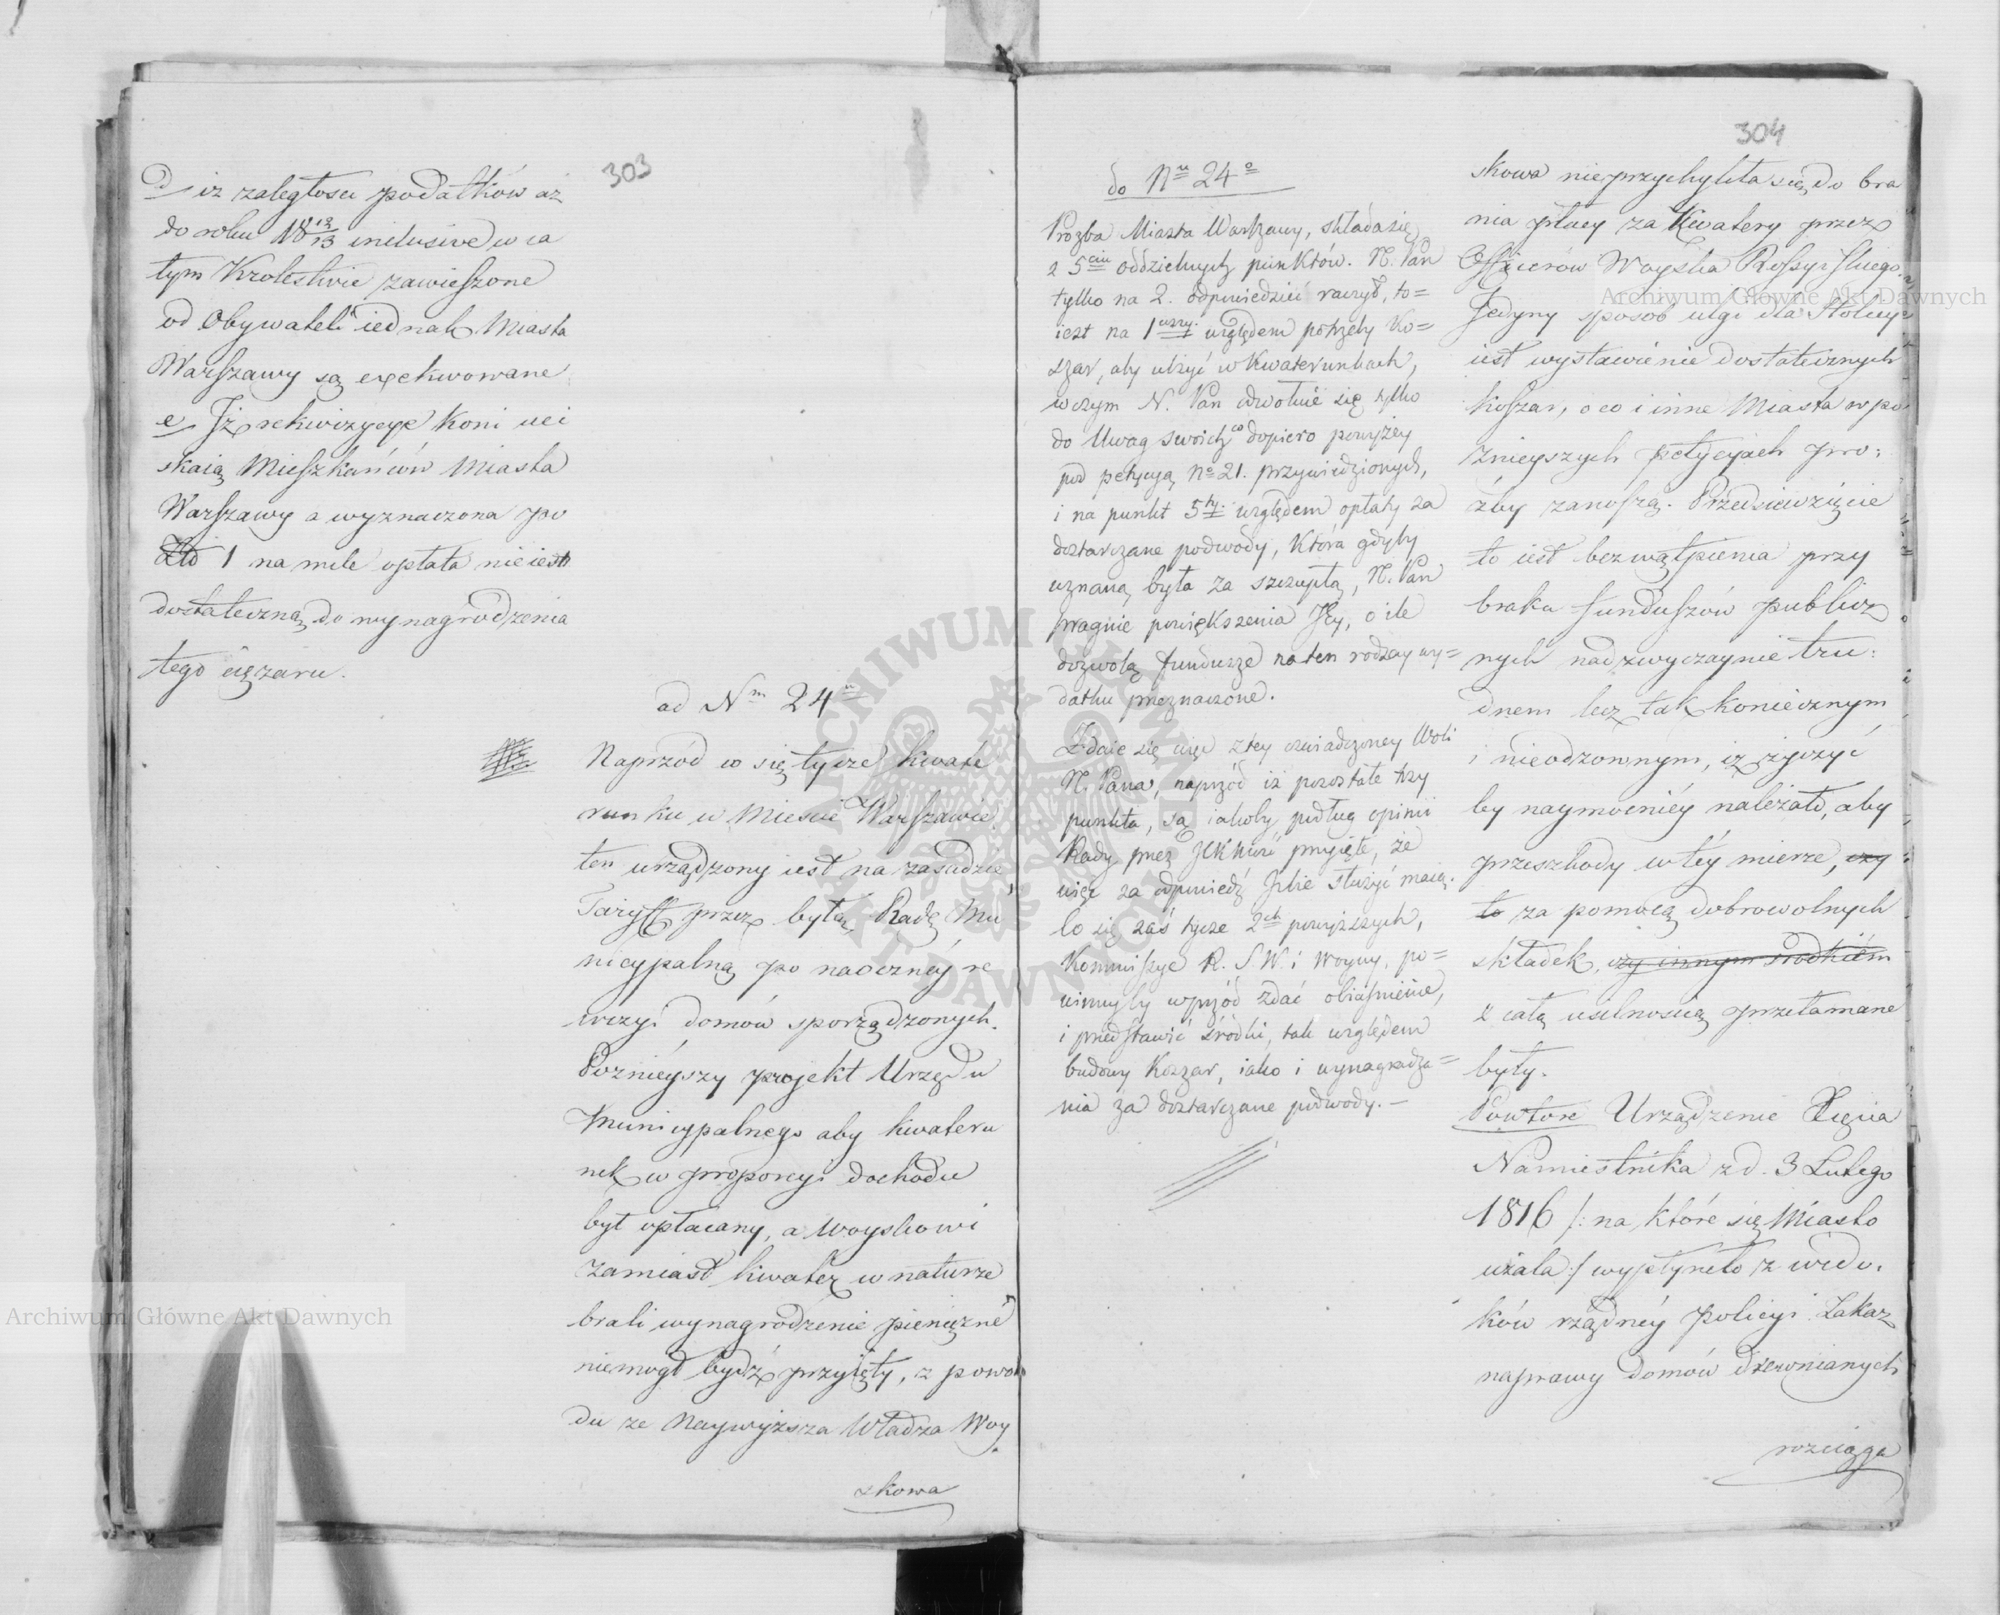 303
d iż zaległości podatków aż
do roku 18 12/13 inclusive w ca
łym Krolestwie zawieszone
od Obywateli iednak Miasta
Warszawy są exekwowane
e Iż rekwizycye koni uci
skaią Mieszkańców Miasta
Warszawy a wyznaczona po
Złł 1 na mile opłata nie iest
dostateczną do wynagrodzenia
tego ciężaru.
ad Nm 24m
Naprzód co się tycze kwate
runku w Mieście Warszawie,
ten urządzony iest na zasadzie
Taryff przez byłą Radę Mu
nicypalną po naoczney re
wizyi domów sporządzonych.
Poznieyszy projekt Urzędu
Municypalnego aby kwateru
nek w proporcyi dochodu
był opłacany, a woyskowi
zamiast kwater w naturze
brali wynagrodzenie pieniężne
niemogł bydź przyięty, z powo
du że Naywyższa Władza Woy
skowa
do Nu 24o
Prozba Miasta Warszawy, składa się
z 5ciu oddzielnych punktów. N. Pan
tylko na 2. odpowiedzieć raczył, to=
iest na 1wszy względem potrzeby Ko=
szar, aby ulżyć w Kwaterunkach,
w czym N. Pan odwołuie się tylko
do Uwag swoich co dopiero powyżey
pod petycyą No 21. przywiedzionych,
i na punkt 5ty względem opłaty za
dostarczane podwody, która gdyby
uznaną była za szczupłą, N. Pan
pragnie powiększenia Jey, o ile
dozwolą fundusze na ten rodzay wy=
datku przeznaczone.
Zdaie się więc z tey oświadczoney Woli
N. Pana, naprzód iż pozostałe trzy
punkta, są iakoby podług opinii
Rady przez JCK Mość przyięte, że
więc za odpowiedź Jzbie służyć maią.
Co się zaś tycze 2ch powyższych,
Kommissye R. S. W. i Woyny, po=
winnyby wprzód zdać obiaśnienie,
i przedstawić śródki, tak względem
budowy Koszar, iako i wynagradza=
nia za dostarczane podwody.—
304
skowa nieprzychyliła się do bra
nia płacy za Kwatery przez
Officerów Woyska Rossyiskiego.
Jedyny sposob ulgi dla Stolicy
iest wystawienie dostatecznych
koszar, o co i inne Miasta w po
znieyszych petycyach pro:
źby zanoszą. Przedsiewzięcie
to iest bezwątpienia przy
braku funduszów public
nych nadzwyczaynie tru:
dnem lecz tak koniecznym
i nieodzownym, iż życzyć
by naymocniéy należało, aby
przeszkody w téy mierze, czy
to za pomocą dobrowolnych
składek, czy innym środkiem
z całą usilnością przełamane
były.
Powtore Urządzenie Xięcia
Namiestnika z d. 3 Lutego
1816 /: na które się Miasto
użala :/ wypłyneło z wido.
ków rządnéy policyi. Zakaz
naprawy domów drewnianych
rozciąga
Archiwum Główne Akt Dawnych
Archiwum Główne Akt Dawnych
ARCHIWUM GŁÓWNE AKT DAWNYCH